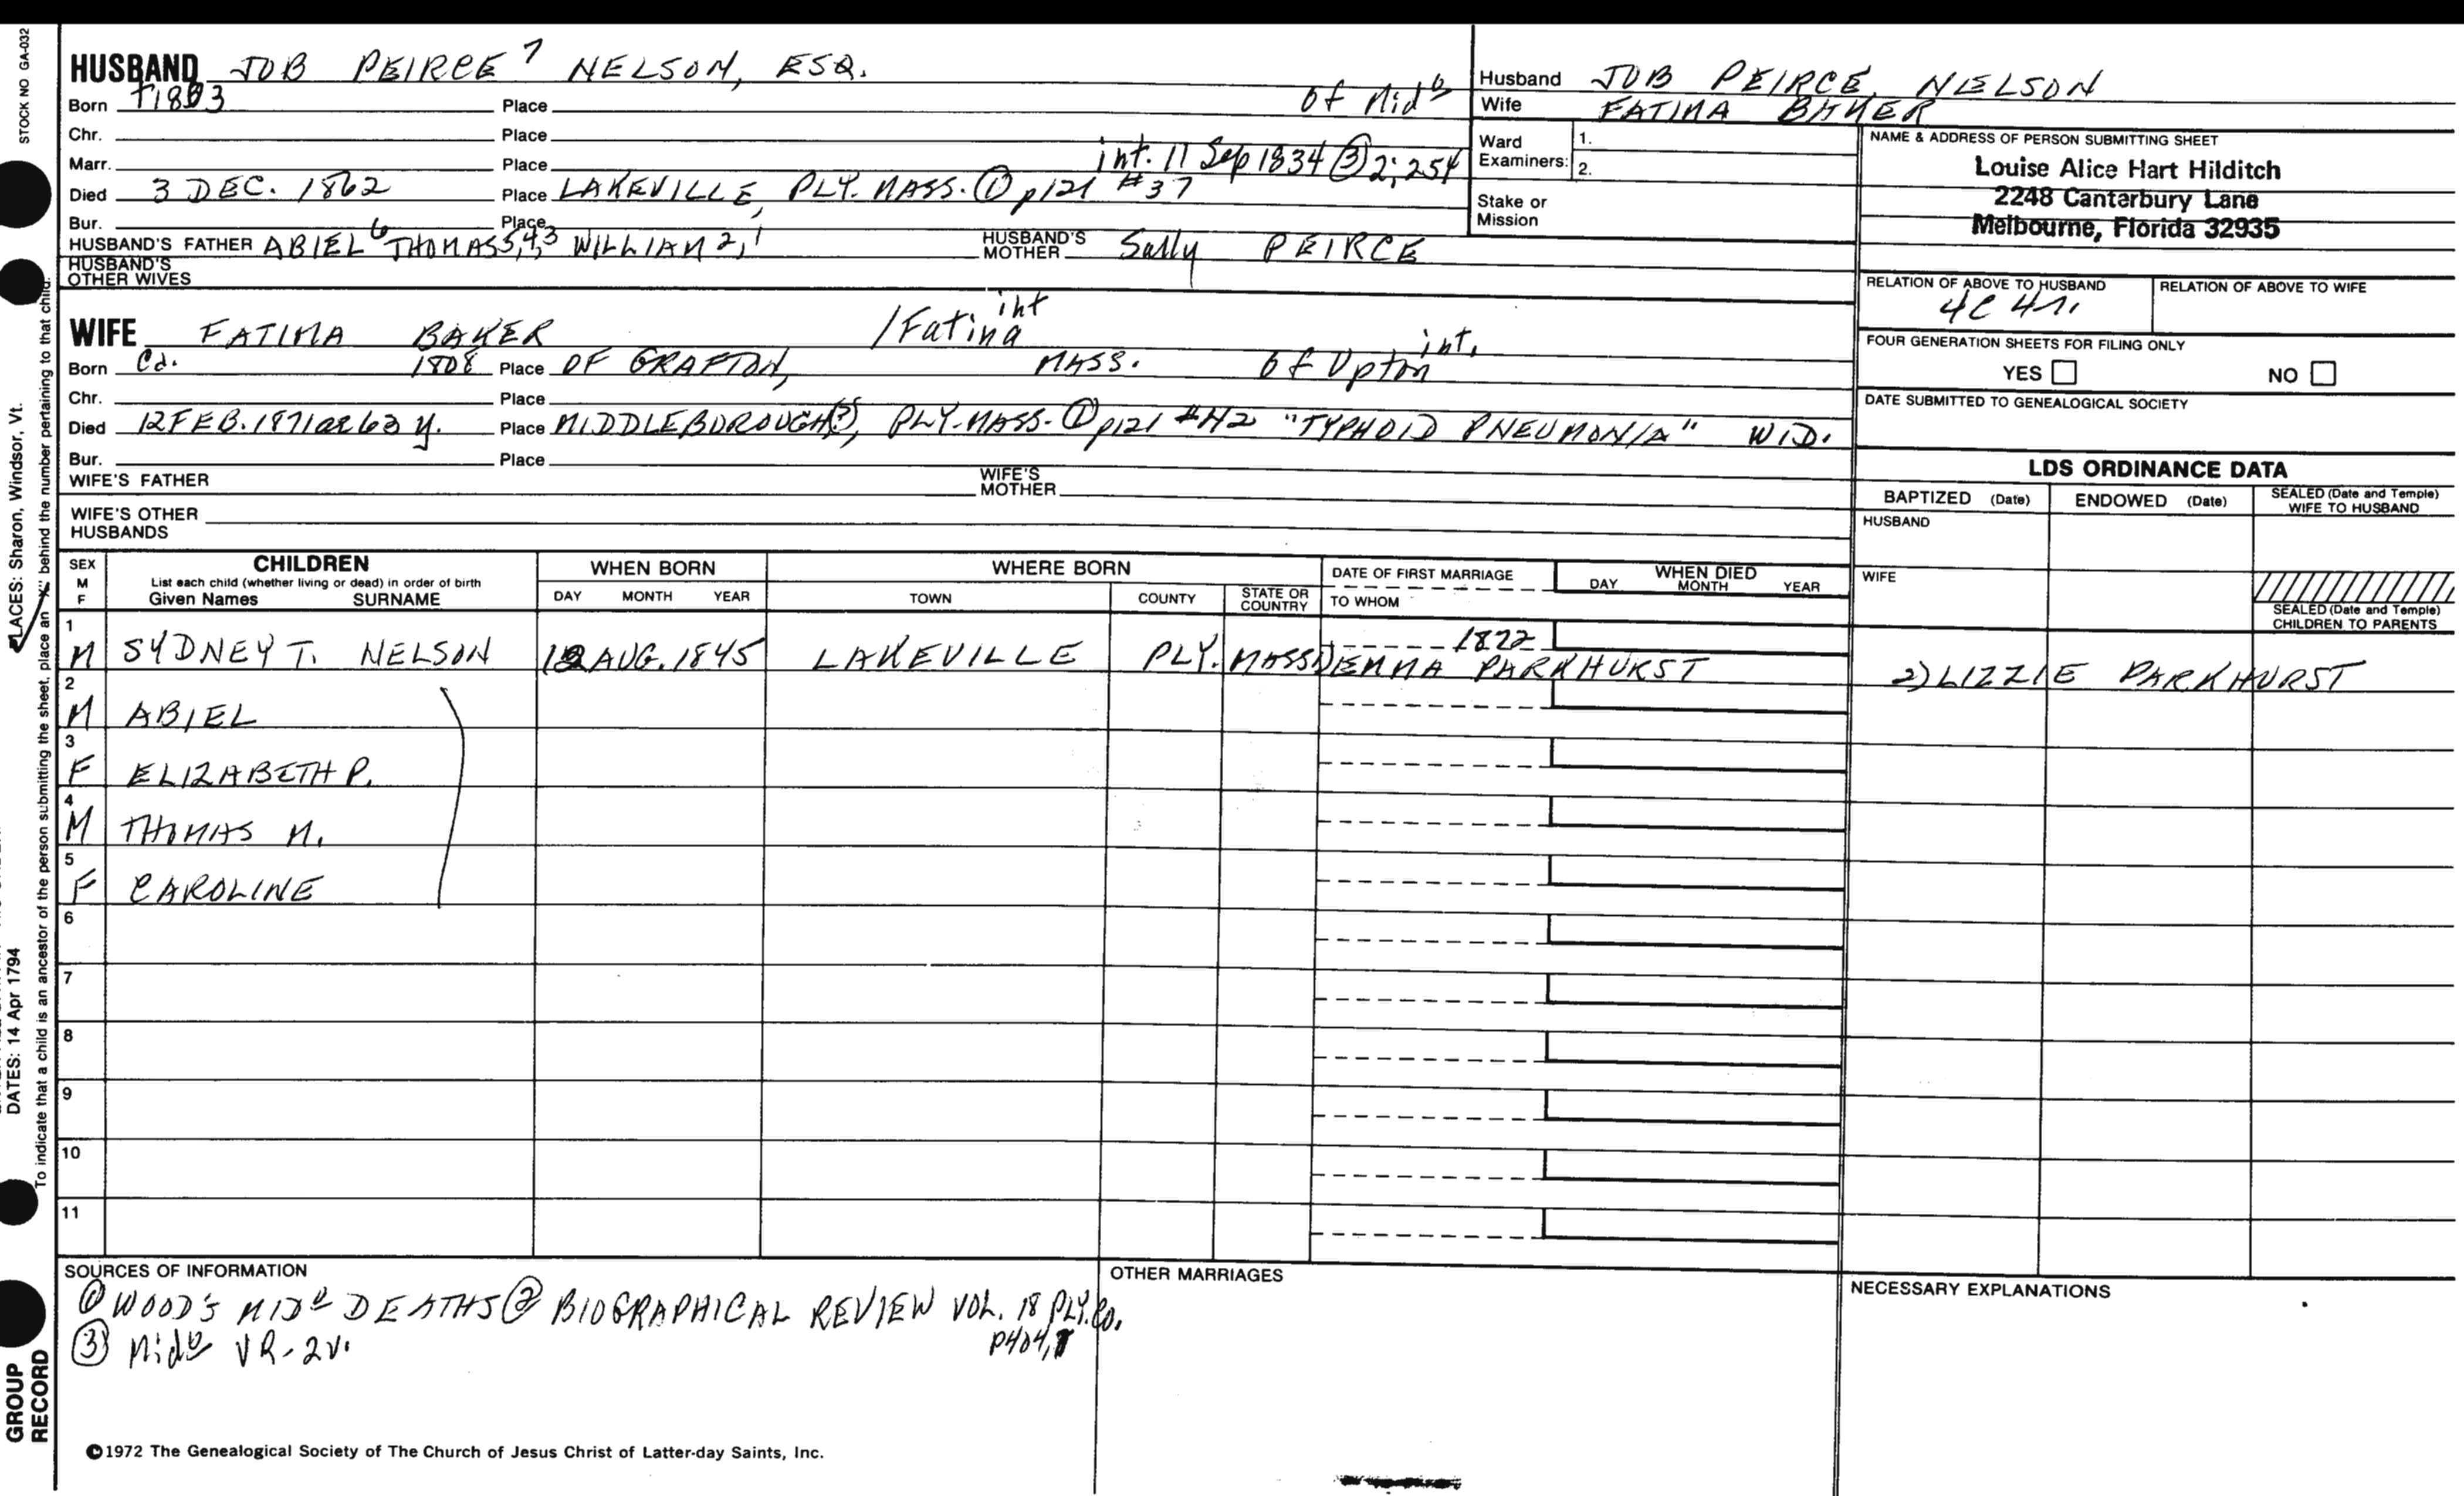 STOCK NO GA-032
HUSBAND JOB PEIRCE 7 NELSON, ESQ.
Born 1803 Place of Mid b
Chr. Place
Marr. Place int. 11 Sep 1834 (3) 2:254
Died 3 DEC. 1862 Place LAKEVILLE, PLY. MASS. (1) p121 #37
Bur. Place
HUSBAND'S FATHER ABIEL 6 THOMAS 5,4,3 WILLIAM 2,1 HUSBAND'S MOTHER Sally PEIRCE
HUSBAND'S OTHER WIVES
WIFE FATIMA BAKER / Fatina int
Born Ca. 1808 Place OF GRAFTON, MASS. of Upton int.
Chr. Place
Died 12 FEB. 1871 ae 63 y. Place MIDDLEBOROUGH(?), PLY. MASS. (1) p121 #42 "TYPHOID PNEUMONIA" WID.
Bur. Place
WIFE'S FATHER WIFE'S MOTHER
WIFE'S OTHER HUSBANDS
Husband JOB PEIRCE NELSON
Wife FATIMA BAKER
Ward Examiners: 1.
2.
Stake or Mission
NAME & ADDRESS OF PERSON SUBMITTING SHEET
Louise Alice Hart Hilditch
2248 Canterbury Lane
Melbourne, Florida 32935
RELATION OF ABOVE TO HUSBAND RELATION OF ABOVE TO WIFE
4C 4r.
FOUR GENERATION SHEETS FOR FILING ONLY
YES NO
DATE SUBMITTED TO GENEALOGICAL SOCIETY
LDS ORDINANCE DATA
BAPTIZED (Date) ENDOWED (Date) SEALED (Date and Temple) WIFE TO HUSBAND
HUSBAND
WIFE
SEALED (Date and Temple) CHILDREN TO PARENTS
SEX M F CHILDREN WHEN BORN WHERE BORN DATE OF FIRST MARRIAGE WHEN DIED
List each child (whether living or dead) in order of birth
Given Names SURNAME DAY MONTH YEAR TOWN COUNTY STATE OR COUNTRY TO WHOM DAY MONTH YEAR
1 M SYDNEY T. NELSON AUG. 1845 LAKEVILLE PLY. MASS 1822 1) EMMA PARKHURST 2) LIZZIE PARKHURST
2 M ABIEL
3 F ELIZABETH P.
4 M THOMAS M.
5 F CAROLINE
6
7
8
9
10
11
SOURCES OF INFORMATION
(1) WOOD'S MID o DEATHS (2) BIOGRAPHICAL REVIEW VOL. 18 PLY. Co. p404,
(3) Mid o VR-2v.
OTHER MARRIAGES
NECESSARY EXPLANATIONS
©1972 The Genealogical Society of The Church of Jesus Christ of Latter-day Saints, Inc.
PLACES: Sharon, Windsor, Vt.
DATES: 14 Apr 1794
To indicate that a child is an ancestor of the person submitting the sheet, place an "X" behind the number pertaining to that child.
GROUP RECORD